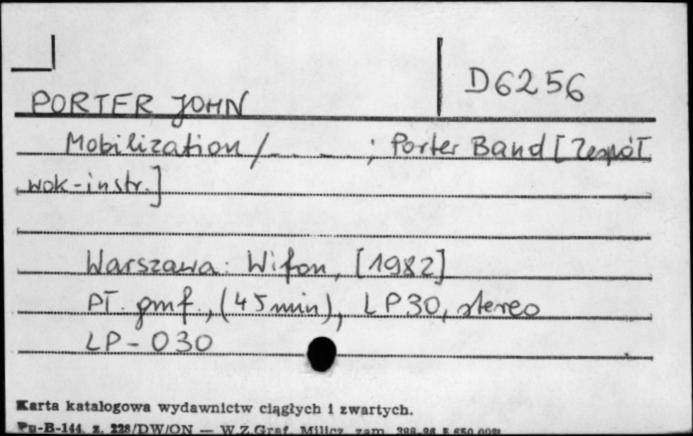 D6256
PORTER JOHN
Mobilization / - - - ; Porter Band [Zespół
wok-instr.]
Warszawa: Wifon, [1982]
Pł. gmf., (45 min), LP30, stereo
LP-030
Karta katalogowa wydawnictw ciągłych i zwartych.
Pu-B-144. z. 228/DW/ON — W.Z.Graf. Milicz, zam.